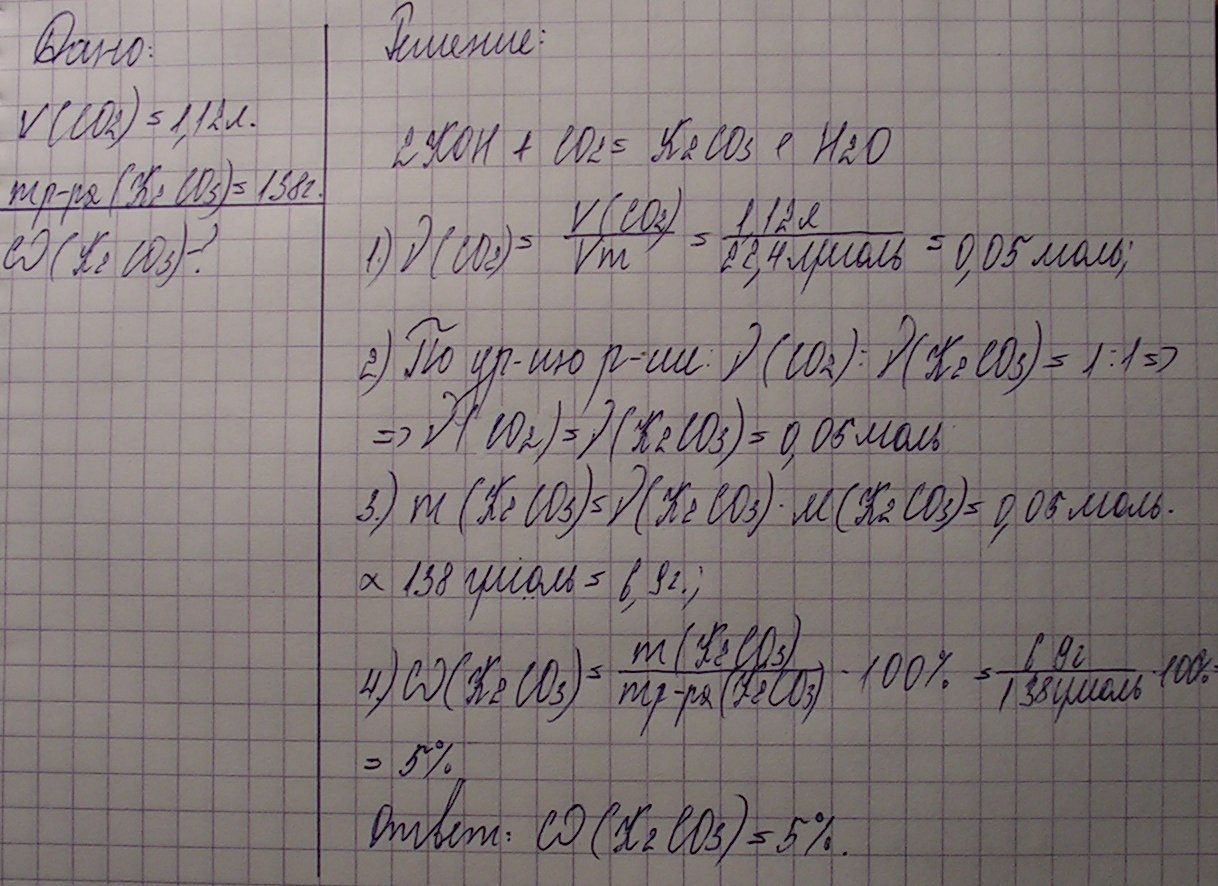 Дано:
V(CO2) = 1,12 л.
mр-ра (K2CO3) = 138 г.
ω(K2CO3) - ?
Решение:
2KOH + CO2 = K2CO3 + H2O
1.) ν(CO2) = V(CO2) / Vm = 1,12 л / 22,4 л/моль = 0,05 моль;
2) По ур-ию р-ии: ν(CO2) : ν(K2CO3) = 1:1 =>
=> ν(CO2) = ν(K2CO3) = 0,05 моль
3.) m(K2CO3) = ν(K2CO3) · M(K2CO3) = 0,05 моль ·
× 138 г/моль = 6,9 г.;
4.) ω(K2CO3) = m(K2CO3) / mр-ра (K2CO3) · 100% = 6,9 г / 138 г/моль · 100% =
= 5%
Ответ: ω(K2CO3) = 5%.